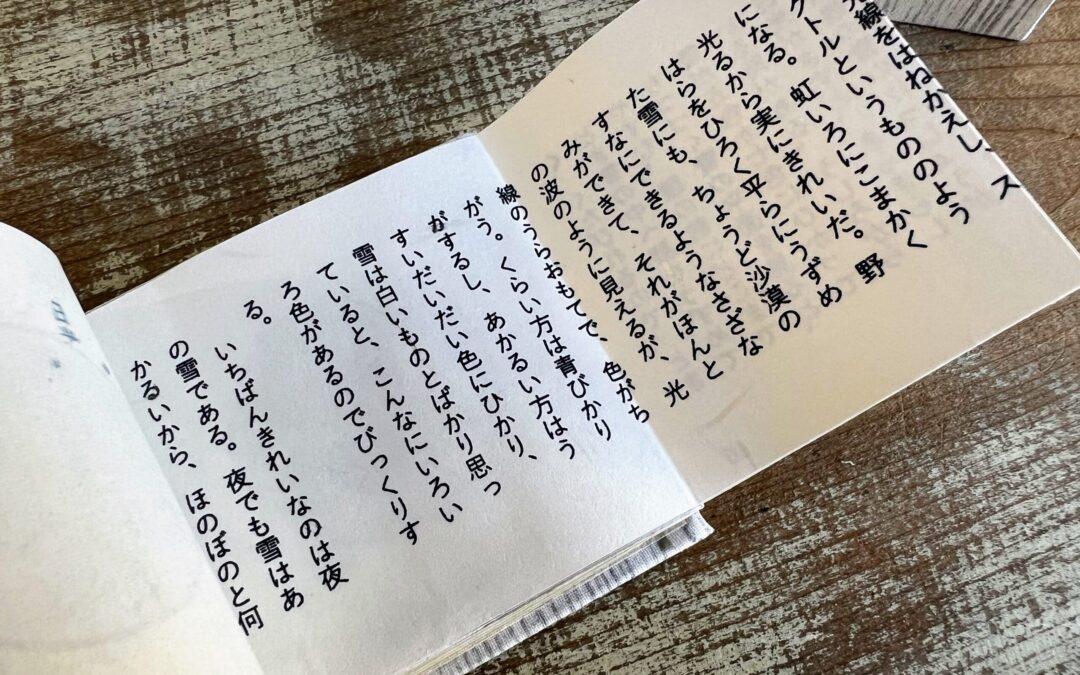 線をはねかえし、ス
クトルというもののよう
になる。虹いろにこまかく
光るから実にきれいだ。野
はらをひろく平らにうずめ
た雪にも、ちょうど沙漠の
すなにできるようなさざな
みができて、それがほんと
の波のように見えるが、光
線のうらおもてで、色がち
がう。くらい方は青びかり
がするし、あかるい方はう
すいだいだい色にひかり、
雪は白いものとばかり思っ
ていると、こんなにいろい
ろ色があるのでびっくりす
る。
いちばんきれいなのは夜
の雪である。夜でも雪はあ
かるいから、ほのぼのと何